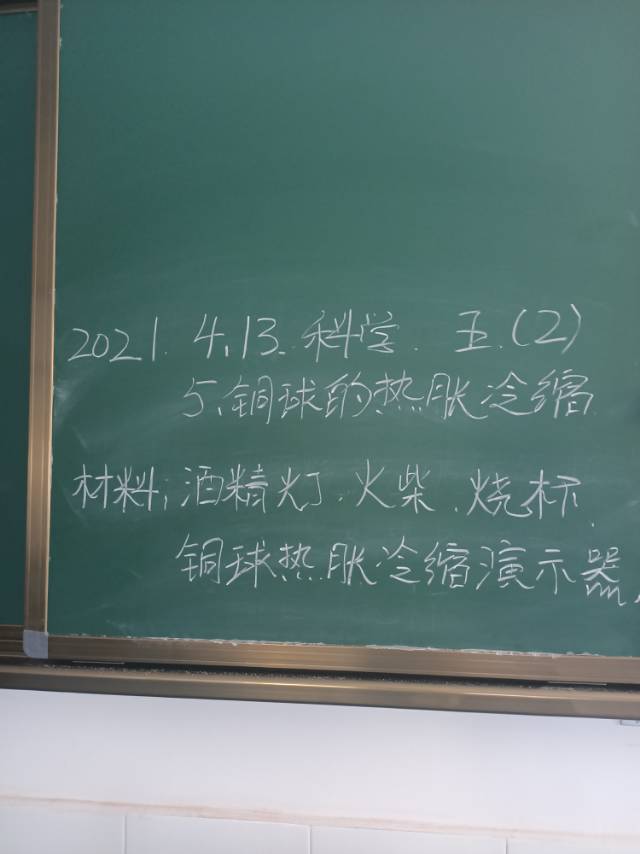 2021. 4.13. 科学. 五.(2)
5、铜球的热胀冷缩
材料: 酒精灯、火柴、烧杯、
铜球热胀冷缩演示器、